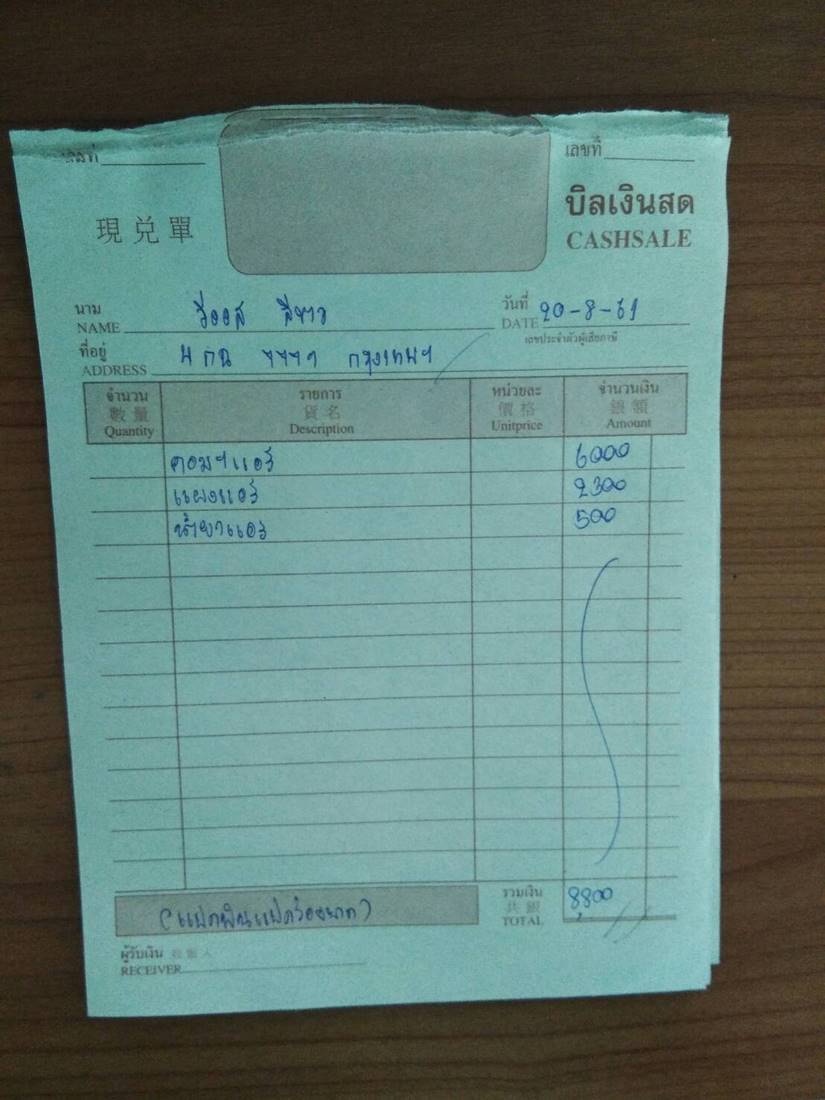 เลขที่ เลขที่
現兌單 บิลเงินสด
CASHSALE
นาม วีออส สีขาว วันที่ 20-8-61
NAME DATE
เลขประจำตัวผู้เสียภาษี
ที่อยู่ 4 กฉ 7771 กรุงเทพฯ
ADDRESS
จำนวน รายการ หน่วยละ จำนวนเงิน
數量 貨名 價格 銀額
Quantity Description Unitprice Amount
คอมฯแอร์ 6000
แผงแอร์ 2300
น้ำยาแอร์ 500
รวมเงิน 8,800
共銀
(แปดพันแปดร้อยบาท) TOTAL
ผู้รับเงิน
RECEIVER